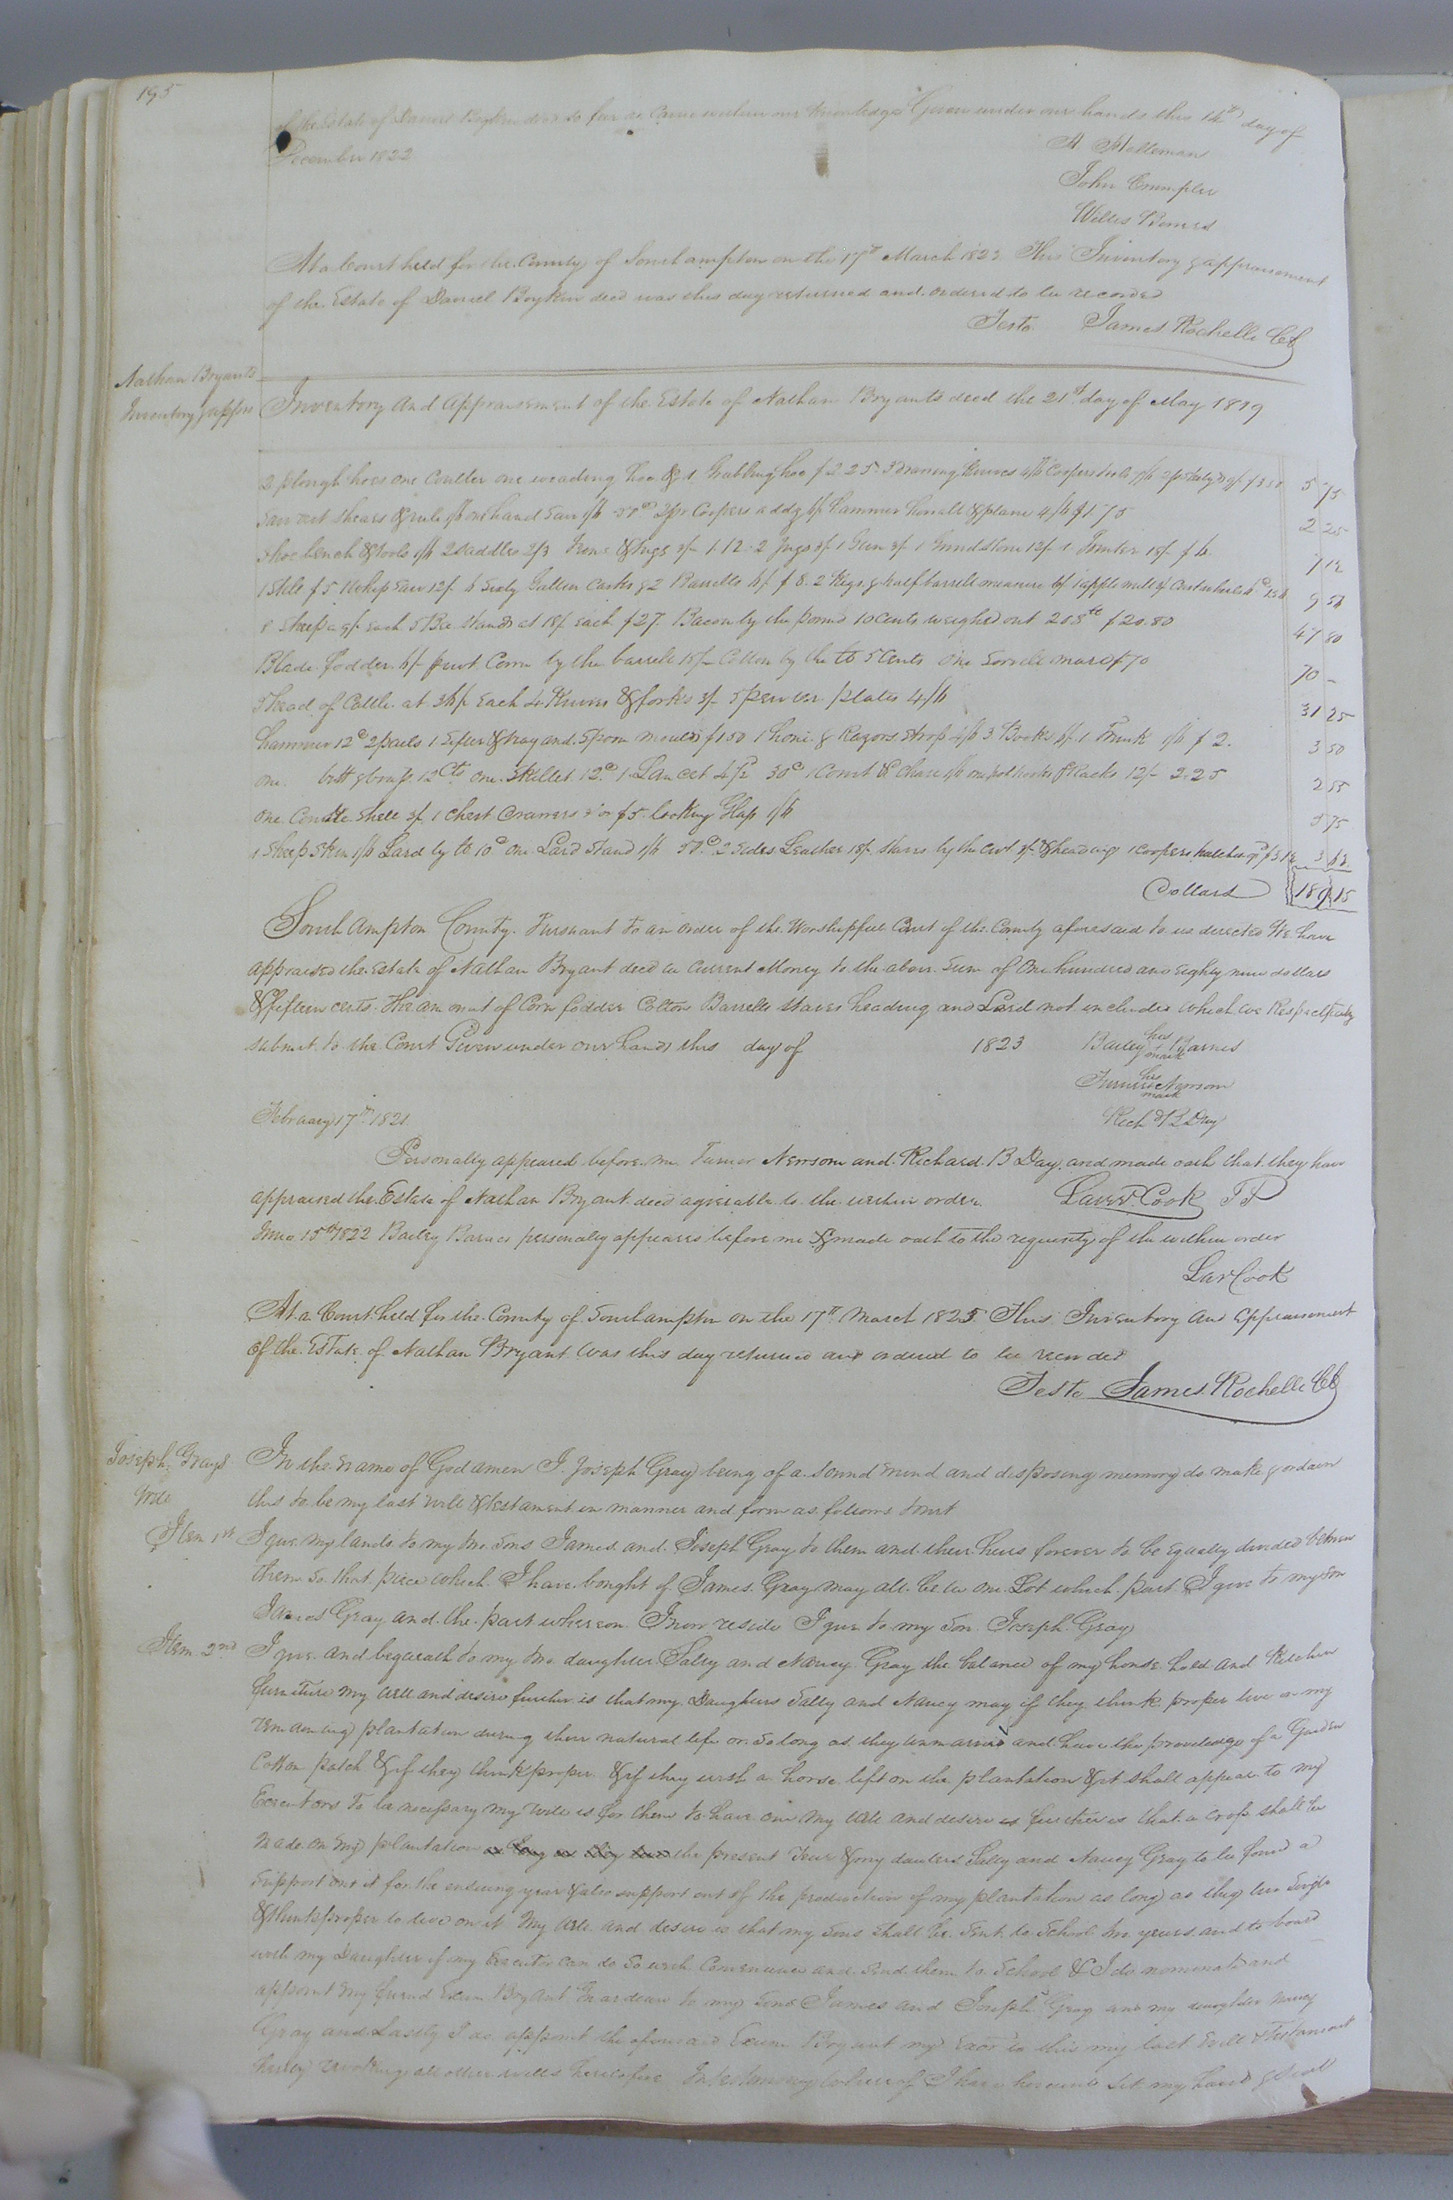 195
of the Estate of Daniel Boykin decd so far as came within our knowledge Given under our hands this 14th day of
December 1822
John Crumpler
Willis
At a Court held for the County of Southampton on the 17th March 1823 This Inventory & appraisement
of the Estate of Daniel Boykin decd was this day returned and ordered to be recorded
Teste James Rochelle CC
Nathan Bryants
Inventory & appra
Inventory and appraisement of the Estate of Nathan Bryants decd the 21st day of May 1819
2 plough hoes one Coulter one weading hoe & 1 Grubbing hoe $2 25 3 Drawing Knives 4/6 Coopers tools 5 75
Saw sett shears & rule 1/6 one hand Saw 1/6 2 pr Coopers adds 6/ hammer & plane 4/6 $1 75 2 25
Shoe bench & tools 1/6 2 saddles 2/3 & Jugs 3/ 1.12 2 Jugs 3/ 1 Gun 3/ 1 Grind Stone 12/ 1 15/ $6 7 12
1 Still $5 Whip Saw 12/ 6 Sixty Gallon Casks & 2 Barrells 6/ $8. 2 Kegs & half barrell measure 1 apple mill & Cart wheels 9 54
8 Sheep a 9/ Each 5 Bee Stands at 18/ Each $27 Bacon by the pound 10 Cents weighed out 208 lb $20.80 47 80
Blade fodder 6/ pr cwt Corn by the barrell 15/ Cotton by the lb 5 Cents One Sorrell mare $70 70 –
head of Cattle at 36/ Each 4 Knives & forks 3/ 5 pewter plates 4/6 31 25
hammer 12c 2 pails 1 Sifter & tray and Spoon moulds $1.50 1 hone & Razors Strop 4/6 3 Books 6/ 1 Trunk 1/6 $2. 3 50
One 12 Cts one Skillet 12c 1 Lancet 30c 1 pot hooks & Racks 12/ 2.25 2 55
One 3/ 1 Chest Drawers $5 looking Glass 1/6 5 75
1 Sheep Skin 1/6 Lard by lb 10c One Lard Stand 1/6 2 Sides Leather 18/ Staves by the cwt 3/ & heading 1 Coopers 3 62
Dollars 189 15
Southampton County. Pursuant to an order of the Worshipful Court of the County aforesaid to us directed We have
appraised the Estate of Nathan Bryant decd in Current Money to the above Sum of One hundred and Eighty nine dollars
& fifteen cents. The amount of Corn fodder Cotton Barrells Staves heading and Lard not included which we Respectfully
submit to the Court Given under our hands this day of 1823 Bailey his mark Barnes
Turner his mark Newsom
Richd B Day
February 17th 1821
Personally appeared before me Turner Newsom and Richard B Day, and made oath that they have
appraised the Estate of Nathan Bryant decd agreeable to the within order. Laved Cook J P
June 15th 1822 Bailey Barnes personally appeared before me & made oath to the of the within order
Lav Cook
At a Court held for the County of Southampton on the 17th March 1823 This Inventory and appraisement
of the Estate of Nathan Bryant was this day returned and ordered to be recorded
Teste James Rochelle CC
Joseph Grays
Will
In the name of God amen I Joseph Gray being of a sound mind and disposing memory do make & ordain
this to be my last will & testament in manner and form as follows
Item 1st I give my lands to my two Sons James and Joseph Gray to them and their heirs forever to be Equally divided between
them so that piece which I have bought of James Gray may all be in one Lot which part I give to my Son
James Gray and the part whereon I now reside I give to my Son Joseph Gray
Item 2nd I give and bequeath to my two daughters Sally and Nancy Gray the balance of my house hold and Kitchen
furniture My will and desire further is that my Daughters Sally and Nancy may if they think proper live on my
remaining plantation during their natural life or So long as they unmarried and have the priveledge of a Garden
Cotton patch & if they think proper & if they wish a horse left on the plantation & it shall appear to my
Executors To be necessary my will is for them to have one My will and desire is further is that a crop shall be
made on my plantation the present Year & my dauters Sally and Nancy Gray to be found a
Support out it for the ensuing year & also support out of the production of my plantation as long as they live Single
& think proper to live on it My will and desire is that my Sons Shall be Sent to School two years and to board
with my Daughters if my Executor can do So with Convenience and Send them to School & I do nominate and
appoint my friend Exum Bryant Guardean to my Sons James and Joseph Gray and my daughter Nancy
Gray and Lastly I do appoint the aforesaid Exum Bryant my Exor to this my last Will & Testament
hereby revoking all other wills heretofore In testimony whereof I have hereunto Set my hand & Seal